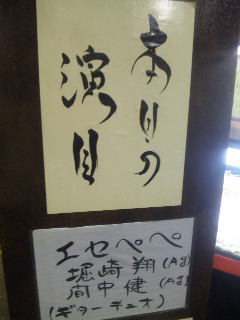 本日の
演目
エセペペ
堀崎 翔 (Ag)
中 健 (Ag)
(ギターデュオ)